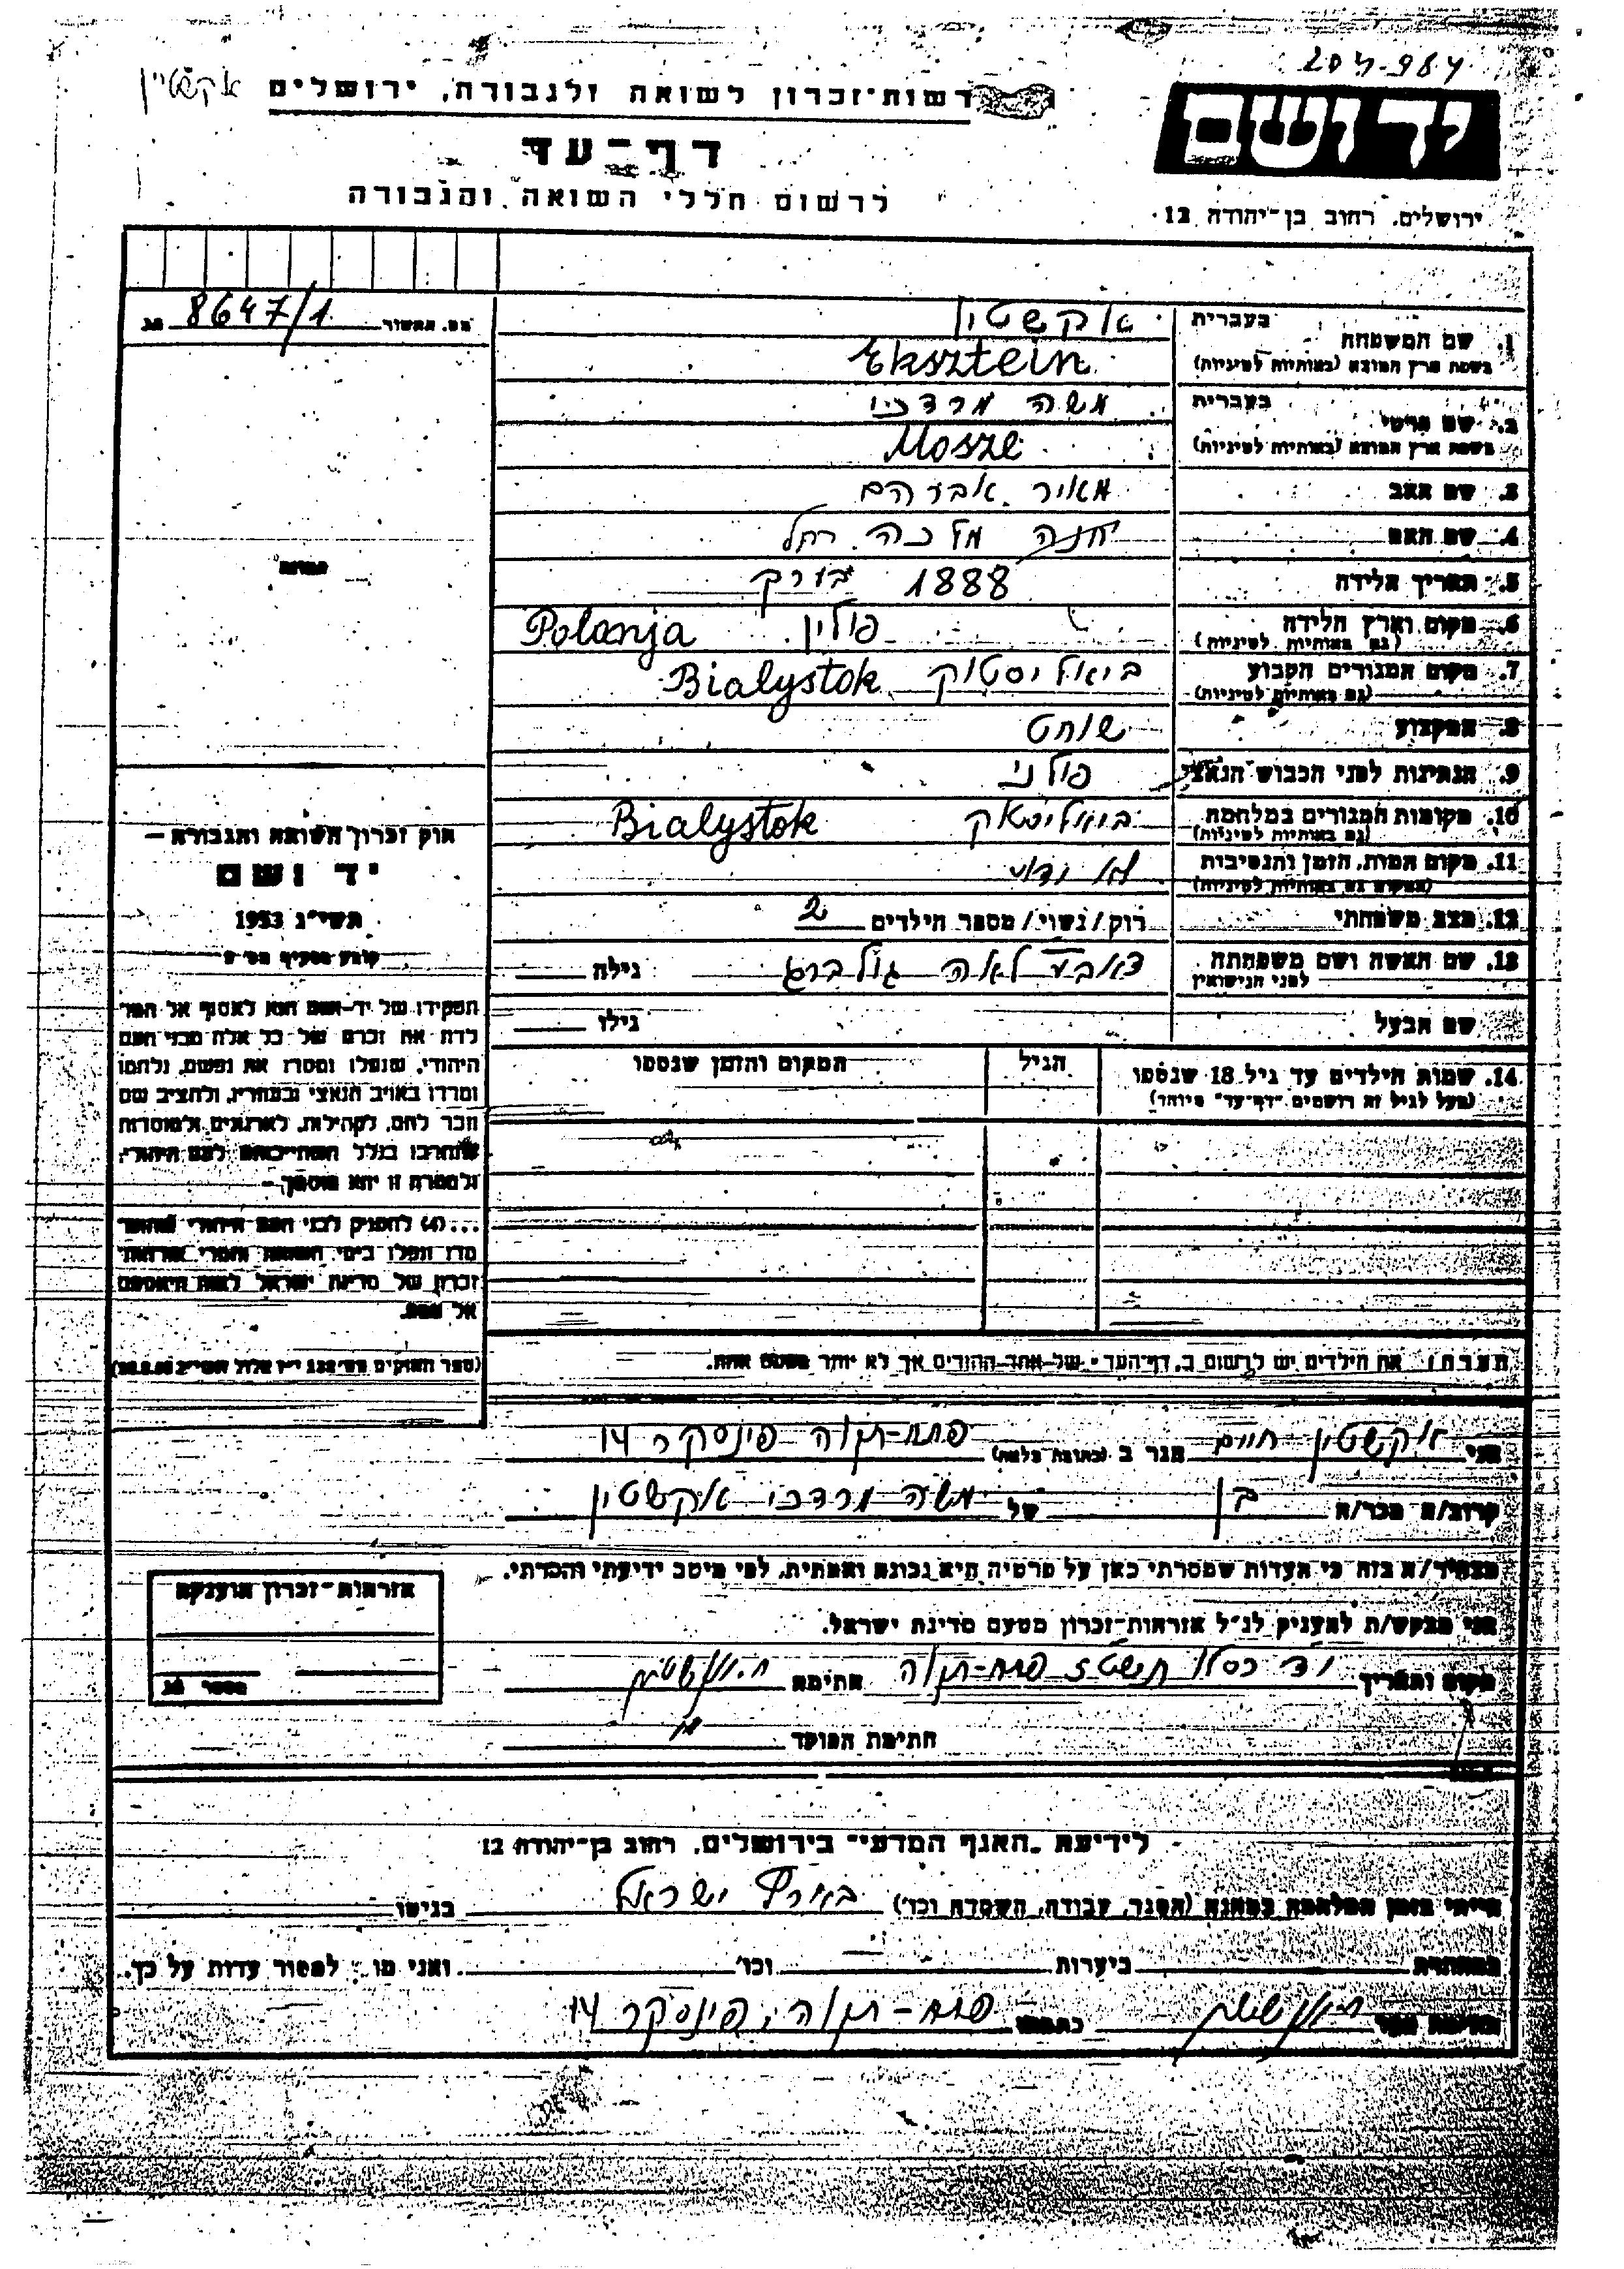 204-964
אקשטיין
רשות־זכרון לשואה ולגבורה, ירושלים
יד ושם
דף־עד
לרשום חללי השואה והגבורה
ירושלים, רחוב בן־יהודה 12
מס. 8647/1
1. שם המשפחה בעברית אקשטין
בשפת ארץ המוצא (באותיות לטיניות) Eksztein
2. שם פרטי בעברית משה מרדכי
בשפת ארץ המוצא (באותיות לטיניות) Mosze
3. שם האב מאיר אברהם
4. שם האם חנה מלכה רחל
5. תאריך הלידה 1888 בערך
6. מקום וארץ הלידה פולין Polanja
(גם באותיות לטיניות)
7. מקום המגורים הקבוע ביאליסטוק Bialystok
(גם באותיות לטיניות)
8. המקצוע שוחט
9. הנתינות לפני הכבוש הנאצי פולני
10. מקומות המגורים במלחמה ביאליסטוק Bialystok
(גם באותיות לטיניות)
11. מקום המות, הזמן והנסיבות לא ודאי
(המקום גם באותיות לטיניות)
12. מצב משפחתי רוק/נשוי/ מספר הילדים 2
13. שם האשה ושם משפחתה לאה גולברג גילה
לפני הנישואין
שם הבעל גילו
14. שמות הילדים עד גיל 18 שנספו הגיל המקום והזמן שנספו
(מעל לגיל זה רושמים "דף־עד" מיוחד)
תמונה
חוק זכרון השואה והגבורה –
יד ושם
תשי"ג 1953
קובע בסעיף מס' 2
תפקידו של יד־ושם הוא לאסוף אל המו־
לדת את זכרם של כל אלה מבני העם
היהודי, שנפלו ומסרו את נפשם, נלחמו
ומרדו באויב הנאצי ובעוזריו, ולהציב שם
וזכר להם, לקהילות, לארגונים ולמוסדות
שנחרבו בגלל השתייכותם לעם היהודי,
ולמטרה זו יהא מוסמך –
...(4) להעניק לבני העם היהודי שהוש־
מדו ונפלו בימי השואה והמרי אזרחות־
זכרון של מדינת ישראל לאות היאספם
אל עמם.
(ספר החוקים מס' 132 י"ז אלול תשי"ג
הערה: את הילדים יש לרשום ב"דף־העד" של אחד ההורים אך לא יותר מפעם אחת.
אני אקשטין חיים הגר ב (כתובת מלאה) פתח-תקוה פינסקר 14
קרוב/ה מכר/ה בן של משה מרדכי אקשטין
מצהיר/ה בזה כי העדות שמסרתי כאן על פרטיה היא נכונה ואמתית, לפי מיטב ידיעתי והכרתי.
אני מבקש/ת להעניק לנ"ל אזרחות־זכרון מטעם מדינת ישראל.
מקום ותאריך יד כסלו תשטז פתח-תקוה חתימה
חתימת הפוקד
אזרחות־זכרון הוענקה
מספר
לידיעת "האגף המדעי" בירושלים, רחוב בן־יהודה 12
הייתי בזמן המלחמה במחנה (הסגר, עבודה, השמדה וכו') בארץ ישראל בגיטו
במחתרת ביערות וכו' ואני מוכן למסור עדות על כך.
כתבתו פתח-תקוה, פינסקר 14